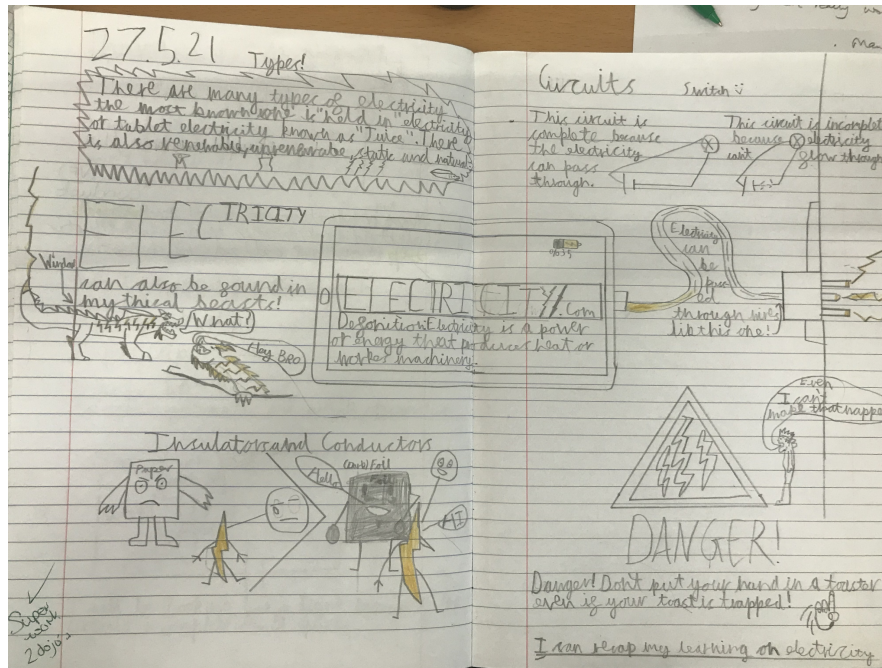 27.5.21
Types!
There are many types of electricity
the most known one is "held in" electricity
or tablet electricity known as "Juice". There
is also renewable, unrenewable, static and natural
ELECTRICITY
can also be found in
mythical
Window
What?
Hey Bro
%35
ELECTRICITY//.com
Electricity is a power
or energy that produces heat or
works machinery.
Insulators and Conductors
Paper
Foil
Hello
HI
Super
work
2 dojo's
Circuits
Switch
This circuit is
complete because
the electricity
can pass
through.
This circuit is incomplet
because electricity
can't flow through
Electricity
can
be
pass
ed
through wires
like this one!
Even
I can't
make that happe
DANGER!
Danger! Don't put your hand in a toaster
even if your toast is trapped!
I can recap my learning on electricity